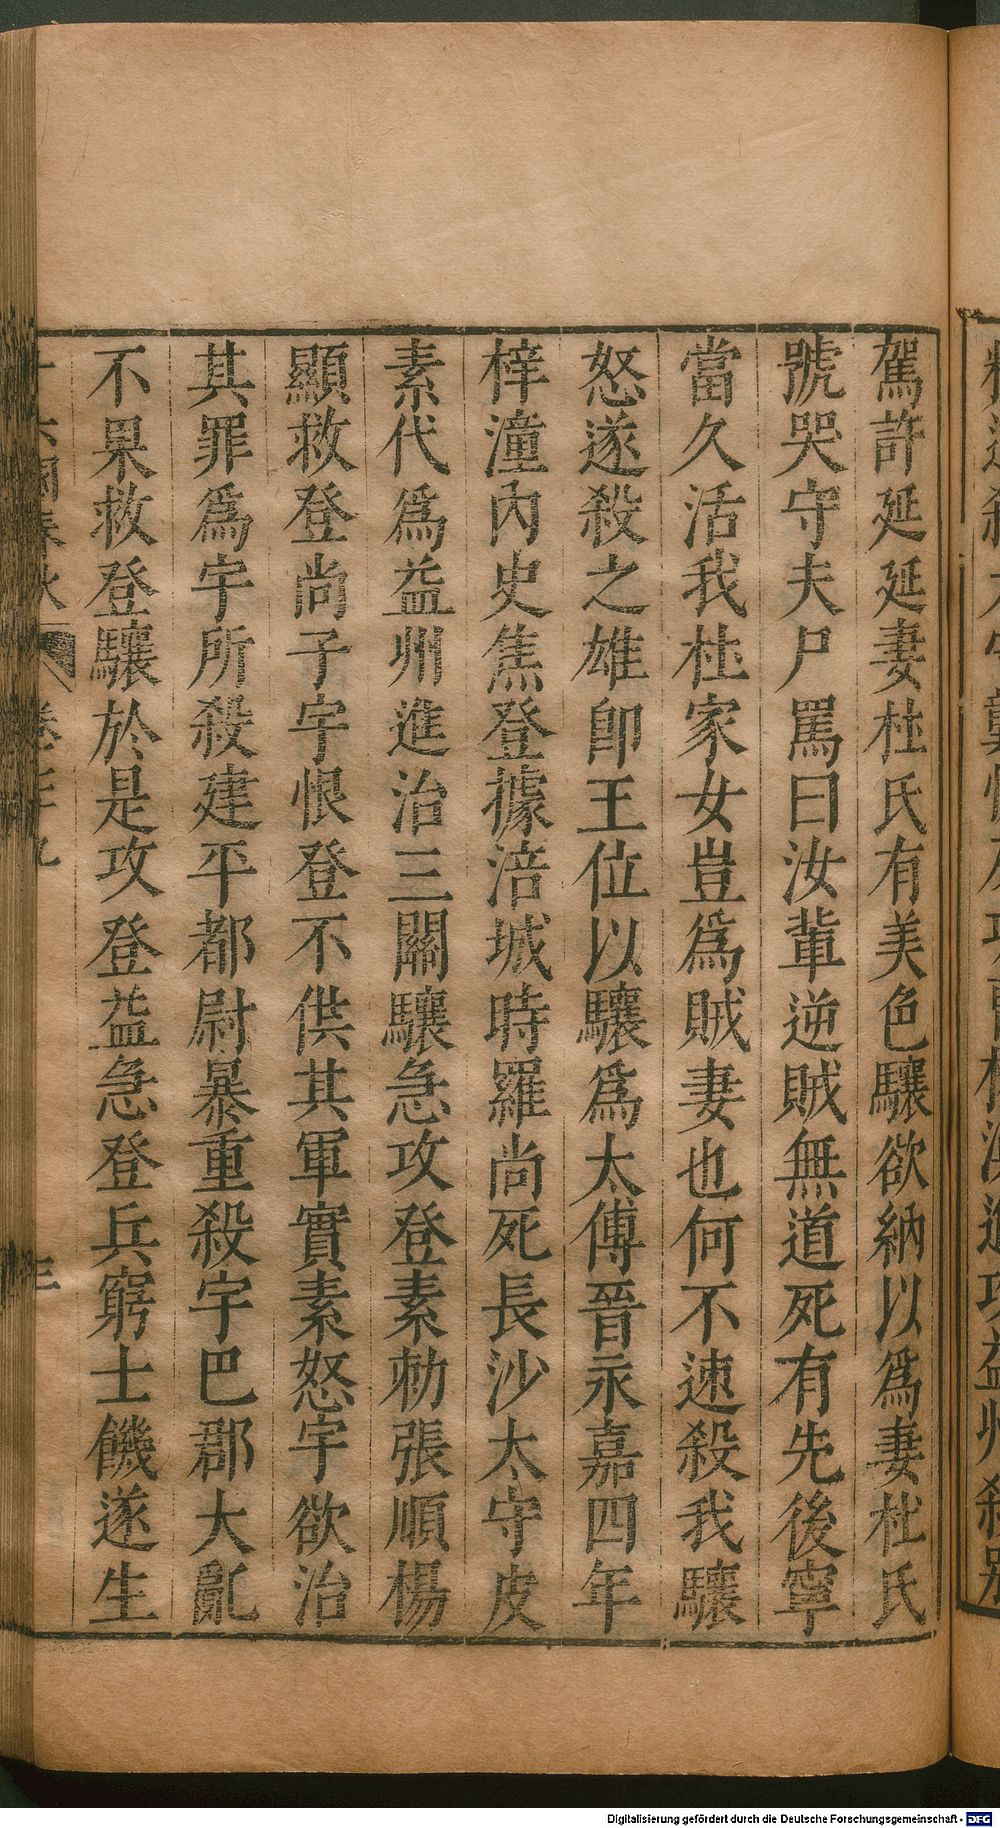 駕許延延妻杜氏有美色驤欲納以爲妻杜氏
號哭守夫尸罵曰汝輩逆賊無道死有先後寧
當久活我杜家女豈爲賊妻也何不速殺我驤
怒遂殺之雄卽王位以驤爲太傅晉永嘉四年
梓潼內史焦登據涪城時羅尚死長沙太守皮
素代爲益州進治三關驤急攻登素勑張順楊
顯救登尚子宇恨登不供其軍實素怒宇欲治
其罪爲宇所殺建平都尉暴重殺宇巴郡大亂
不果救登驤於是攻登益急登兵窮士饑遂生
十六國春秋 卷 三
Digitalisierung gefördert durch die Deutsche Forschungsgemeinschaft - DFG